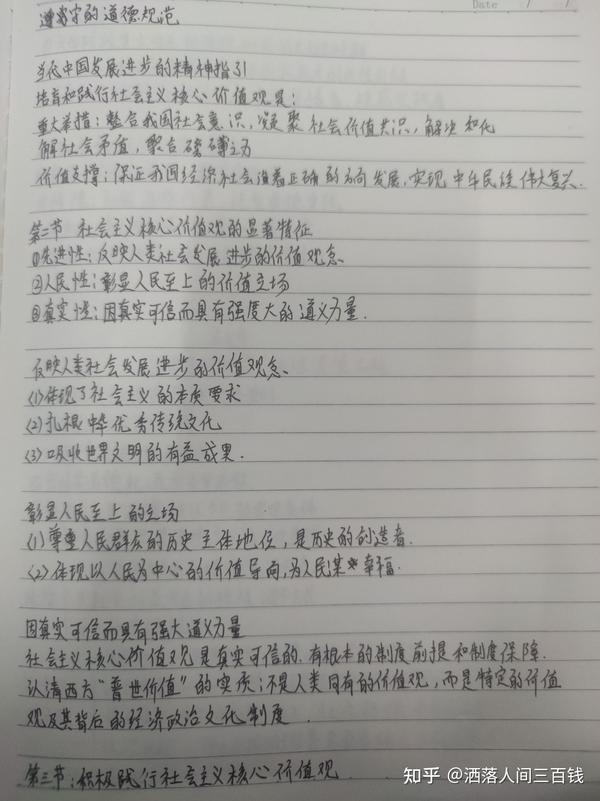 遵守的道德规范
Date / /
当代中国发展进步的精神指引
培育和践行社会主义核心价值观是:
重大举措:整合我国社会意识,凝聚社会价值共识,解决和化
解社会矛盾,聚合磅礴之力
价值支撑:保证我国经济社会沿着正确的方向发展,实现中华民族伟大复兴.
第二节 社会主义核心价值观的显著特征
①先进性:反映人类社会发展进步的价值观念、
②人民性:彰显人民至上的价值立场
③真实性:因真实可信而具有强度大的道义力量.
反映人类社会发展进步的价值观念、
(1)体现了社会主义的本质要求
(2)扎根中华优秀传统文化
(3)吸收世界文明的有益成果.
彰显人民至上的立场
(1)尊重人民群众的历史主体地位,是历史的创造者.
(2)体现以人民为中心的价值导向,为人民谋幸福.
因真实可信而具有强大道义力量
社会主义核心价值观是真实可信的.有根本的制度前提和制度保障.
认清西方“普世价值”的实质:不是人类同有的价值观,而是特定的价值
观及其背后的经济政治文化制度.
第三节:积极践行社会主义核心价值观.
知乎 @洒落人间三百钱